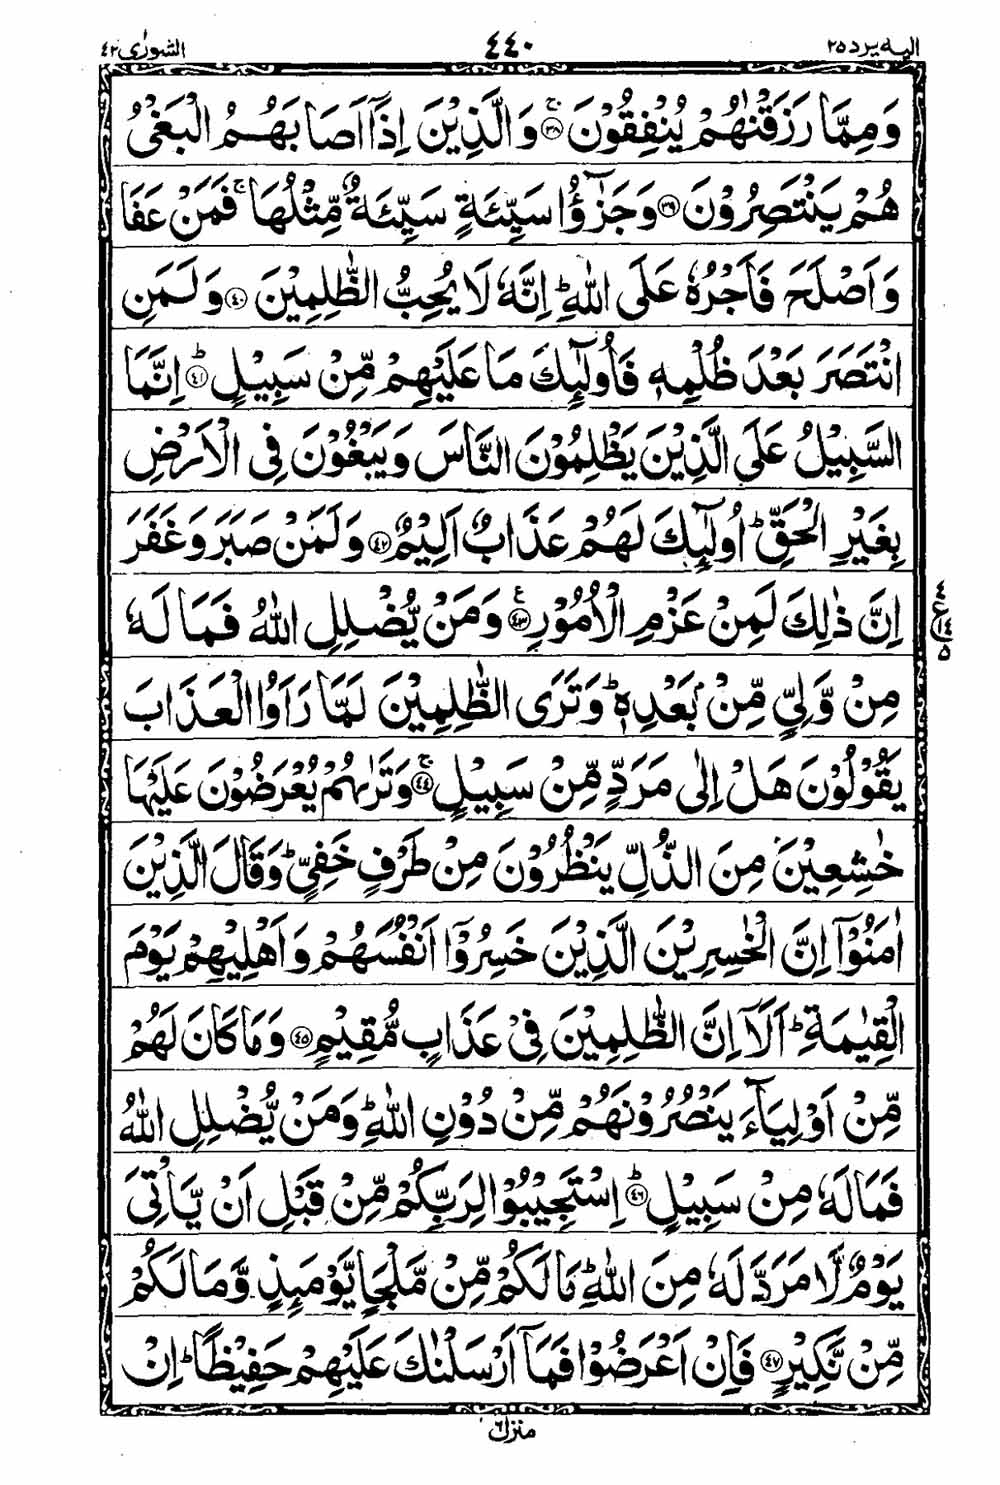 اليه يرد ٢٥ ٤٤٠ الشورٰى ٤٢
وَمِمَّا رَزَقْنٰهُمْ يُنْفِقُوْنَ ۚ‏﴿۳۸﴾ وَالَّذِيْنَ اِذَاۤ اَصَابَهُمُ الْبَغْىُ
هُمْ يَنْتَصِرُوْنَ ﴿۳۹﴾ وَجَزٰٓؤُا سَيِّئَةٍ سَيِّئَةٌ مِّثْلُهَا ۚ فَمَنْ عَفَا
وَاَصْلَحَ فَاَجْرُهٗ عَلَى اللّٰهِ ؕ اِنَّهٗ لَا يُحِبُّ الظّٰلِمِيْنَ ﴿۴۰﴾ وَلَمَنِ
انْتَصَرَ بَعْدَ ظُلْمِهٖ فَاُولٰٓئِكَ مَا عَلَيْهِمْ مِّنْ سَبِيْلٍ ؕ‏﴿۴۱﴾ اِنَّمَا
السَّبِيْلُ عَلَى الَّذِيْنَ يَظْلِمُوْنَ النَّاسَ وَيَبْغُوْنَ فِى الْاَرْضِ
بِغَيْرِ الْحَقِّ ؕ اُولٰٓئِكَ لَهُمْ عَذَابٌ اَلِيْمٌ ﴿۴۲﴾ وَلَمَنْ صَبَرَ وَغَفَرَ
اِنَّ ذٰلِكَ لَمِنْ عَزْمِ الْاُمُوْرِ ﴿۴۳﴾ ع وَمَنْ يُّضْلِلِ اللّٰهُ فَمَا لَهٗ
٤ ع ١٤ ٥
مِنْ وَّلِىٍّ مِّنْۢ بَعْدِهٖ ؕ وَتَرَى الظّٰلِمِيْنَ لَمَّا رَاَوُا الْعَذَابَ
يَقُوْلُوْنَ هَلْ اِلٰى مَرَدٍّ مِّنْ سَبِيْلٍ ۚ‏﴿۴۴﴾ وَتَرٰىهُمْ يُعْرَضُوْنَ عَلَيْهَا
خٰشِعِيْنَ مِنَ الذُّلِّ يَنْظُرُوْنَ مِنْ طَرْفٍ خَفِىٍّ ؕ وَقَالَ الَّذِيْنَ
اٰمَنُوْۤا اِنَّ الْخٰسِرِيْنَ الَّذِيْنَ خَسِرُوْۤا اَنْفُسَهُمْ وَاَهْلِيْهِمْ يَوْمَ
الْقِيٰمَةِ ؕ اَلَاۤ اِنَّ الظّٰلِمِيْنَ فِىْ عَذَابٍ مُّقِيْمٍ ﴿۴۵﴾ وَمَا كَانَ لَهُمْ
مِّنْ اَوْلِيَآءَ يَنْصُرُوْنَهُمْ مِّنْ دُوْنِ اللّٰهِ ؕ وَمَنْ يُّضْلِلِ اللّٰهُ
فَمَا لَهٗ مِنْ سَبِيْلٍ ؕ‏﴿۴۶﴾ اِسْتَجِيْبُوْا لِرَبِّكُمْ مِّنْ قَبْلِ اَنْ يَّاْتِىَ
يَوْمٌ لَّا مَرَدَّ لَهٗ مِنَ اللّٰهِ ؕ مَا لَكُمْ مِّنْ مَّلْجَاٍ يَّوْمَئِذٍ وَّمَا لَكُمْ
مِّنْ نَّكِيْرٍ ﴿۴۷﴾ فَاِنْ اَعْرَضُوْا فَمَاۤ اَرْسَلْنٰكَ عَلَيْهِمْ حَفِيْظًا ؕ اِنْ
منزل ٦